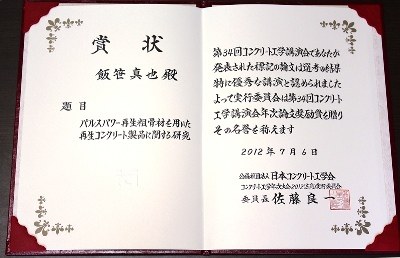 賞状
飯笹真也殿
題目
パルスパワー再生粗骨材を用いた
再生コンクリート製品に関する研究
第34回コンクリート工学講演会であなたが
発表された標記の論文は選考の結果
特に優秀な講演と認められました
よって実行委員会は第34回コンクリート
工学講演会年次論文奨励賞を贈り
その名誉を称えます
2012年7月6日
公益社団法人日本コンクリート工学会
コンクリート工学年次大会2012実行委員会
委員長 佐藤良一